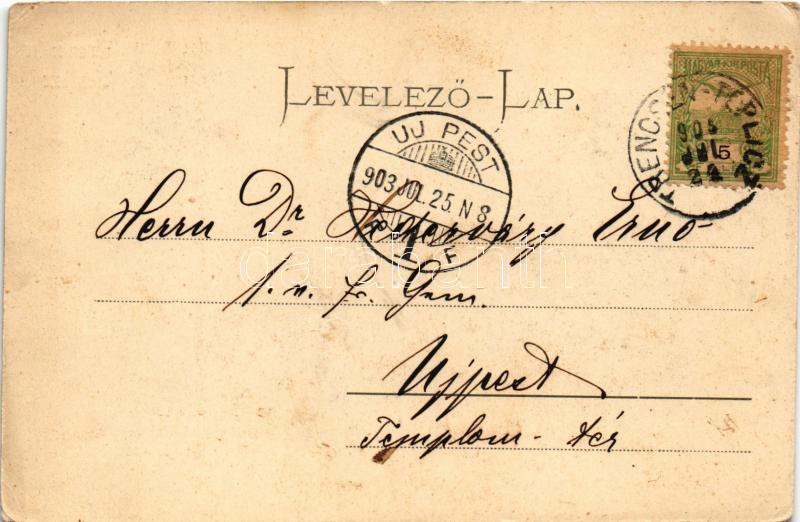 LEVELEZŐ-LAP.
MAGYAR KIR. POSTA
5
TRENCSÉN-TEPLICZ
903
JUL
24
UJ PEST
903 JUL. 25. N 8
F
Herrn Dr. Ernö
Ujpest
Templom-tér
darabanth